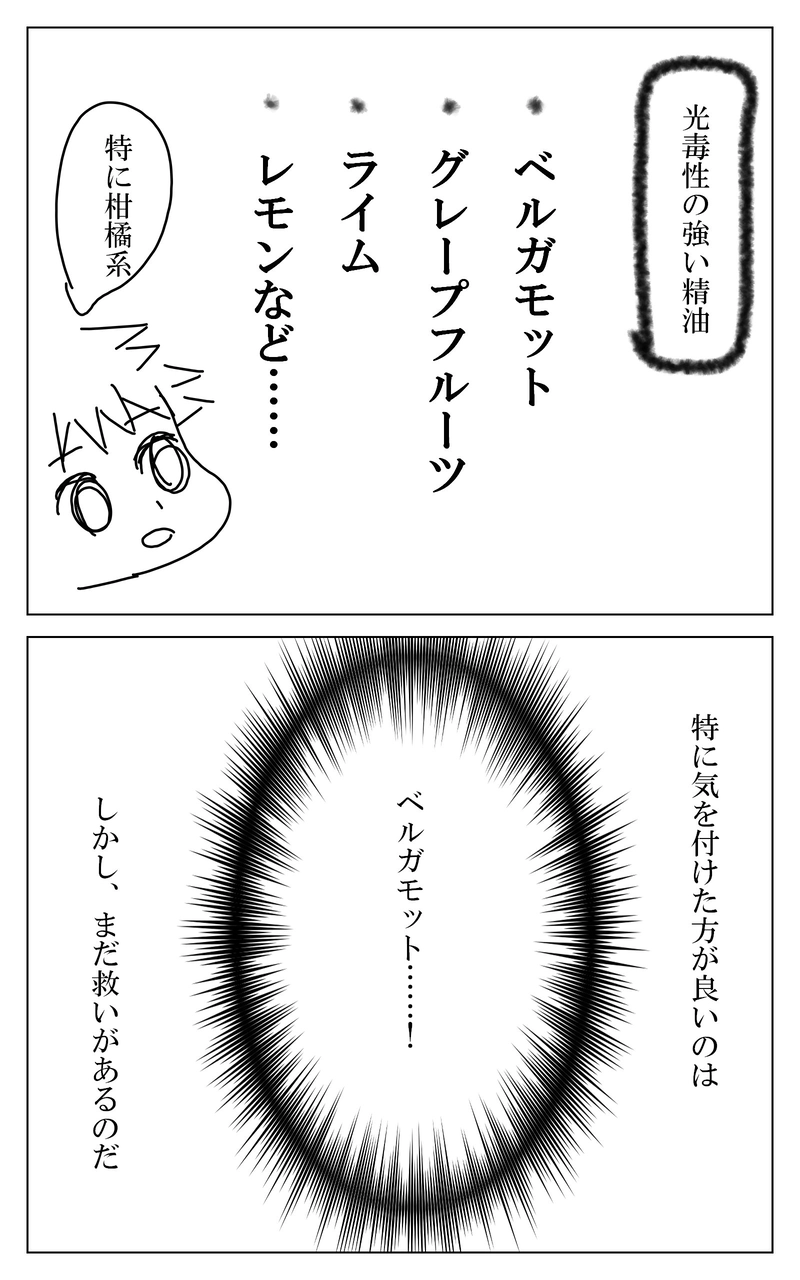 光毒性の強い精油
・ベルガモット
・グレープフルーツ
・ライム
・レモンなど……
特に柑橘系
特に気を付けた方が良いのは
ベルガモット……！
しかし、まだ救いがあるのだ